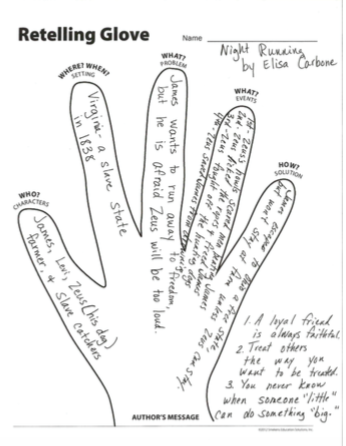 Retelling Glove
Name
Night Running
by Elisa Carbone
WHO?
CHARACTERS
James, Levi, Zeus (his dog)
farmer, & slave catchers
WHERE? WHEN?
SETTING
Virginia - a slave state
in 1838
WHAT?
PROBLEM
James wants to run away to freedom,
but he is afraid Zeus will be too loud.
WHAT?
EVENTS
1st - Zeus's howls scared
2nd - Zeus
3rd - Zeus fought off the hunting dogs
4th - Zeus saved James from drowning
HOW?
SOLUTION
James
to a free state,
Zeus can stay.
1. A loyal friend
is always faithful.
2. Treat others
the way you
want to be treated.
3. You never know
when someone "little"
can do something "big."
AUTHOR'S MESSAGE